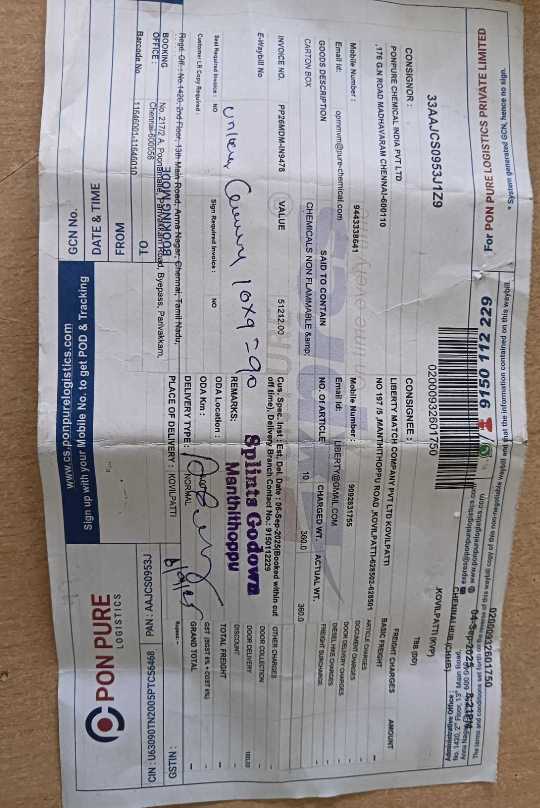 PON PURE
LOGISTICS
CIN : U63090TN2005PTC56468 PAN : AAJCS0953J GSTIN :
www.cs.ponpurelogistics.com
Sign up with your Mobile No. to get POD & Tracking
GCN No.
020009932601750
DATE & TIME
04-Sep-2025 8:21PM
FROM
CHENNAI HUB (CHHB)
TO
KOVILPATTI (KVP)
Barcode No.
11646001-11646010
BOOKING OFFICE :
No. 217/2 A, Poonamallee Parivakkam Road, Byepass, Parivakkam,
Chennai-600056
BOOKING MODE
TBB (DD)
PLACE OF DELIVERY : KOVILPATTI
Regd. Off : No.1420, 2nd Floor, 13th Main Road, Anna Nagar, Chennai, Tamil Nadu,
DELIVERY TYPE : NORMAL
Customer LR Copy Required :
ODA Km :
Seal Required Invoice : NO
Sign Required Invoice : NO
ODA Location :
REMARKS:
Splints Godown
Manthithoppu
10x9=90
E-Waybill No
Cus. Spec. Inst : Est. Del. Date : 06-Sep-2025(Booked within cut
off time), Delivery Branch Contact No.: 9150112229
INVOICE NO. PP26MDM-IN9478 VALUE 51212.00
CARTON BOX
CHEMICALS NON FLAMMABLE &amp;
10 360.0 360.0
GOODS DESCRIPTION SAID TO CONTAIN NO. Of ARTICLE CHARGED WT. ACTUAL WT.
Email Id: opmmvm@pure-chemical.com
Email Id: LIBERTY@GMAIL.COM
Mobile Number : 9443338641
Mobile Number : 9092831755
,176 G.N ROAD MADHAVARAM CHENNAI-600110
NO 197 /5 ,MANTHITHOPPU ROAD ,KOVILPATTI-628502-628501
PONPURE CHEMICAL INDIA PVT LTD
LIBERTY MATCH COMPANY PVT LTD KOVILPATTI
CONSIGNOR : 33AAJCS0953J1Z9
CONSIGNEE :
FREIGHT CHARGES AMOUNT
BASIC FREIGHT
ARTICLE CHARGES
DOCUMENT CHARGES
DOOR DELIVERY CHARGES
DIESEL HIKE CHARGES
FREIGHT SURCHARGE
OTHER CHARGES
DOOR COLLECTION
DOOR DELIVERY
DISCOUNT
TOTAL FREIGHT
GST (SGST 6% + CGST 6%)
GRAND TOTAL
Rupees :
For PON PURE LOGISTICS PRIVATE LIMITED
9150 112 229
* System generated GCN, hence no sign.